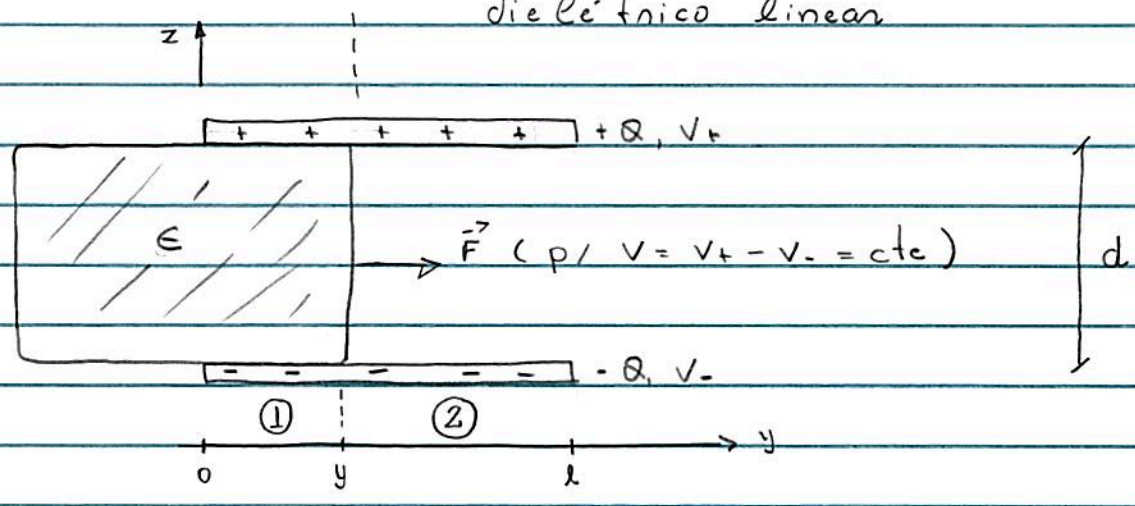 dielétrico linear
z
+ + + + + + Q, V+
ϵ
F⃗ ( p/ V = V+ - V- = cte )
d
- - - - - - Q, V-
① ②
y
0 y l